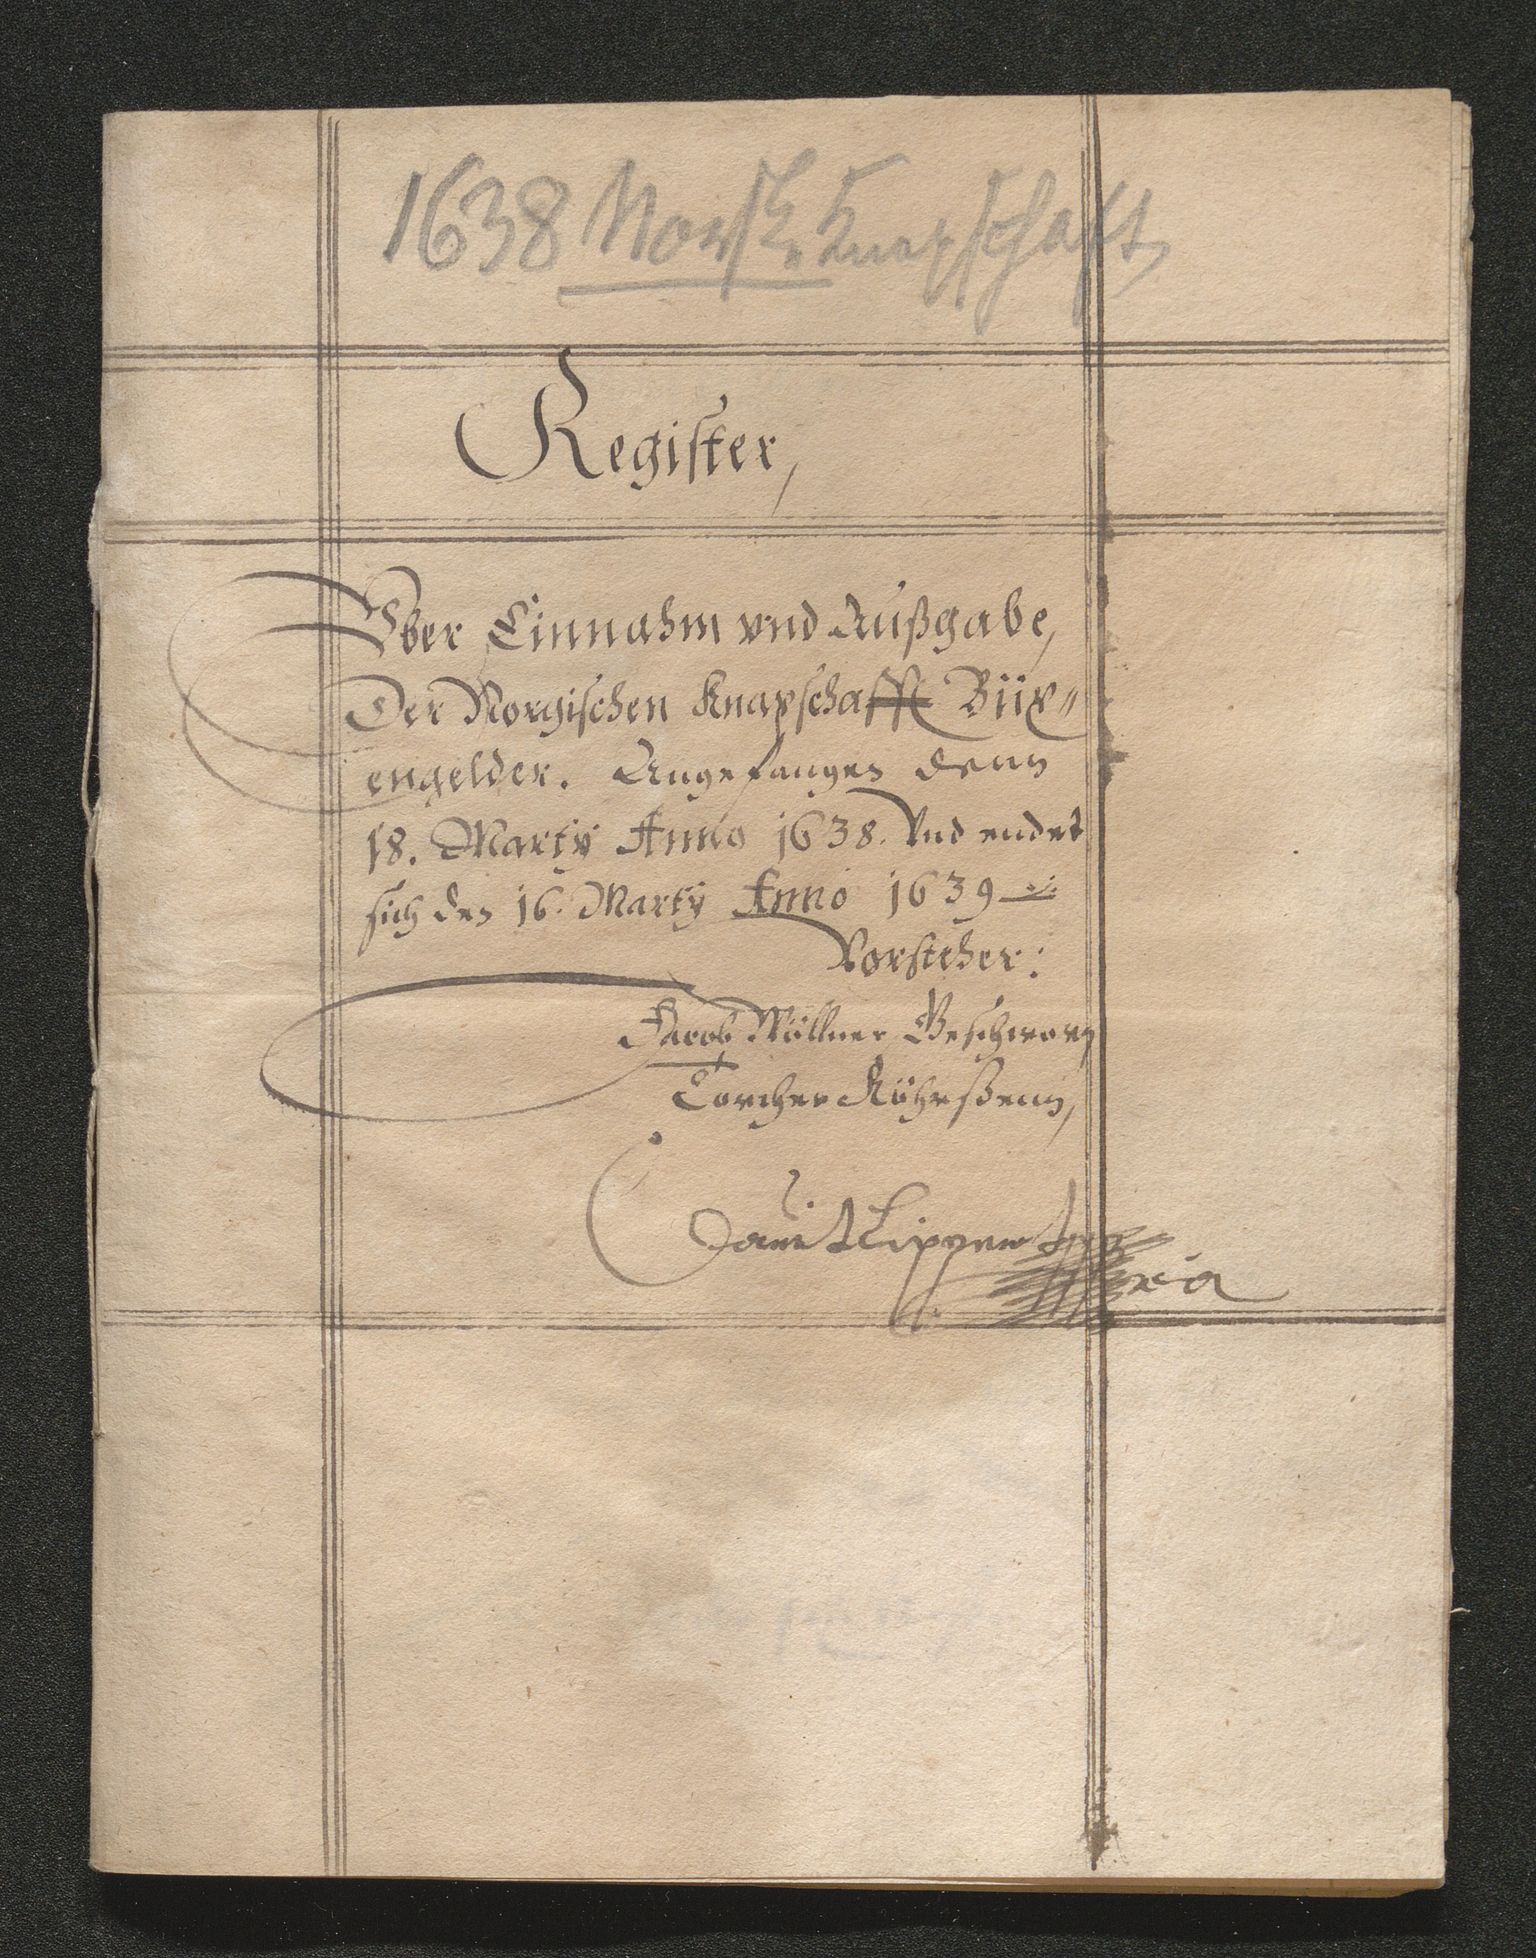 1638 Norsk Knapschaft
Register,
Vber Einnahm vnd Außgabe,
Der Norgischen Knapschafft Büx-
engelder. Angefangen denn
18. Marty Anno 1638. Vnd endet
sich den 16. Marty Anno 1639
Vorsteher:
Jacob Möllner Geschworn
Torcher Röhrßenn,
Dauit Lippert